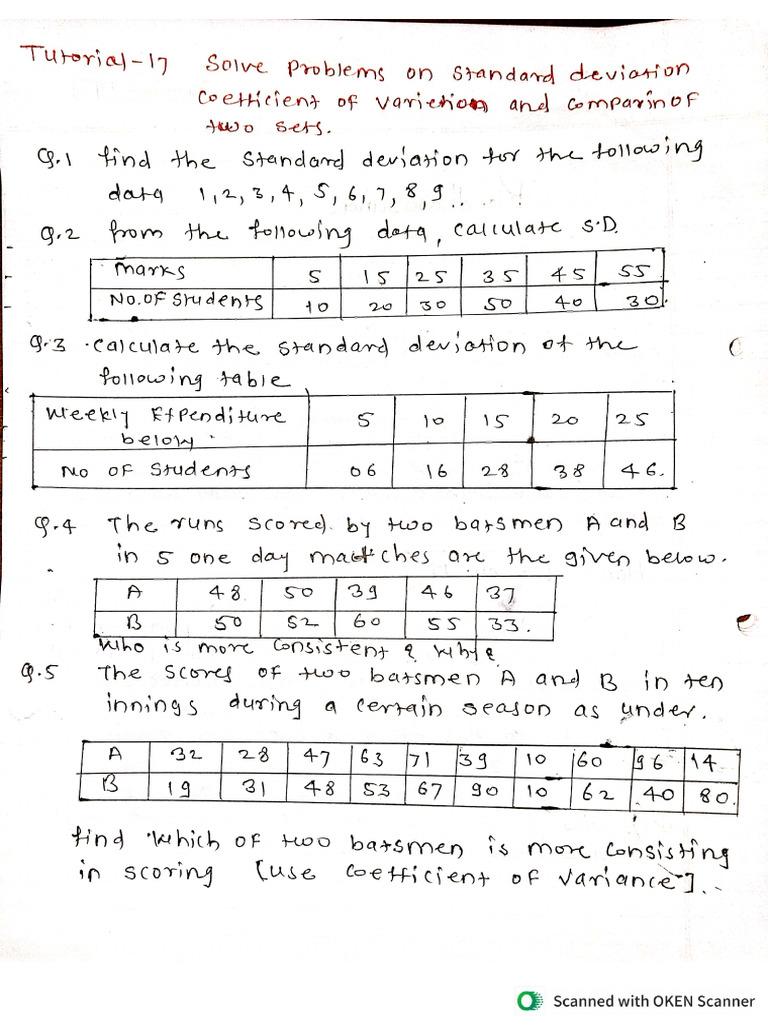 Tutorial-17 Solve Problems on Standard deviation
Coefficient of variation and comparin of
two sets.
Q.1 find the standard deviation for the following
data 1, 2, 3, 4, 5, 6, 7, 8, 9..
Q.2 from the following data, calculate S.D.
marks 5 15 25 35 45 55
No. of Students 10 20 30 50 40 30.
Q.3 calculate the standard deviation of the
following table
Weekly Expenditure 5 10 15 20 25
below.
No of Students 06 16 28 38 46.
Q.4 The runs scored by two batsmen A and B
in 5 one day matches are the given below.
A 48 50 39 46 37
B 50 52 60 55 33.
Who is more consistent &
Q.5 The scores of two batsmen A and B in ten
innings during a certain season as under.
A 32 28 47 63 71 39 10 60 96 14
B 19 31 48 53 67 90 10 62 40 80.
find which of two batsmen is more consisting
in scoring [use coefficient of variance].
Scanned with OKEN Scanner